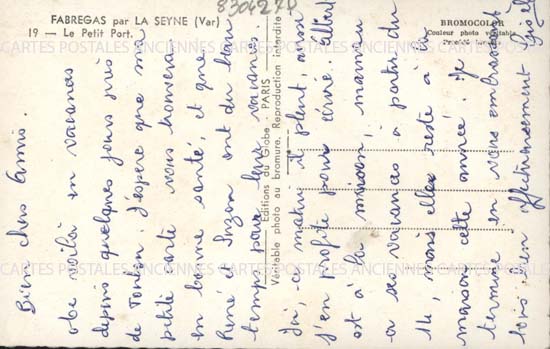 8304270
FABREGAS par LA SEYNE (Var)
19 — Le Petit Port.
BROMOCOLOR
Couleur photo véritable
Editions du Globe - PARIS
Véritable photo au bromure. Reproduction interdite
CARTES POSTALES ANCIENNES
Bien chers Amis.
Me voilà en vacances
depuis quelques jours près
de Toulon. J'espère que ma
petite carte vous trouvera
en bonne santé, et que
René et Suzon ont du bon
temps pour leurs vacances.
Ici, ce matin il pleut, aussi
j'en profite pour écrire. Albert
est à la maison, maman
a ses vacances à partir du
11, mais elle reste à la
maison cette année. Je
termine en vous embrassant
tous bien affectueusement